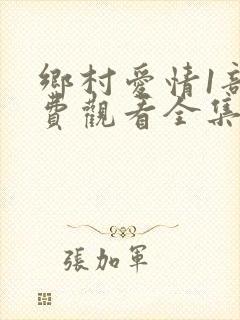 鄉村愛情1部
費觀看全集
張加軍